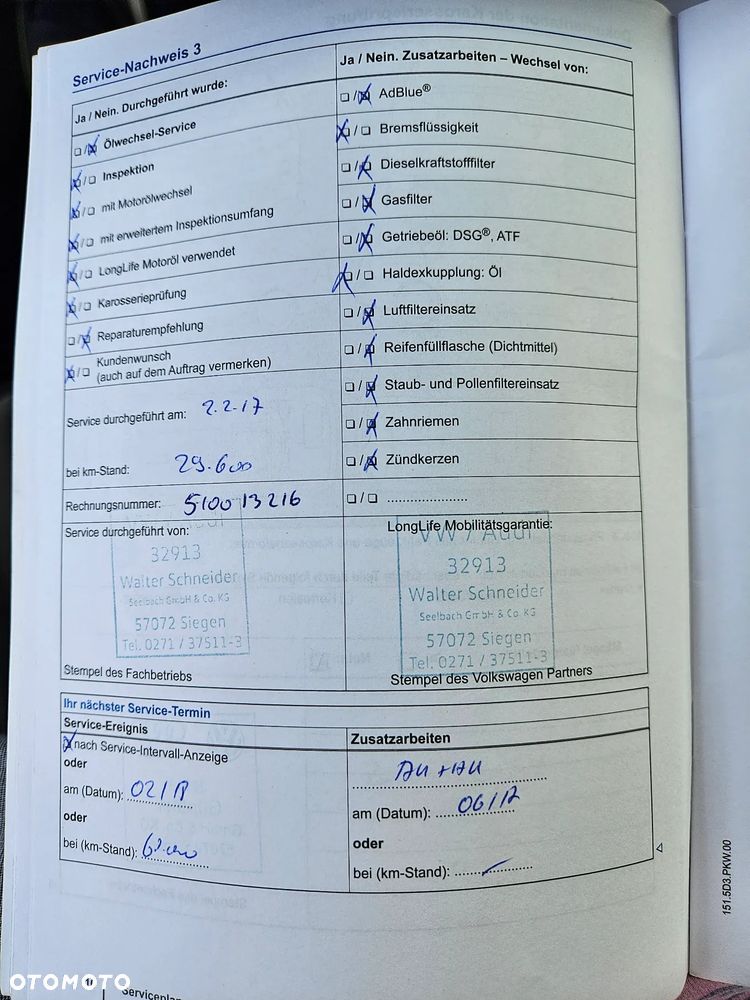 Service-Nachweis 3
Ja / Nein. Durchgeführt wurde:
❏ / ❏ Ölwechsel-Service
❏ / ❏ Inspektion
❏ / ❏ mit Motorölwechsel
❏ / ❏ mit erweitertem Inspektionsumfang
❏ / ❏ LongLife Motoröl verwendet
❏ / ❏ Karosserieprüfung
❏ / ❏ Reparaturempfehlung
❏ / ❏ Kundenwunsch
(auch auf dem Auftrag vermerken)
Service durchgeführt am: 2.2.17
bei km-Stand: 29.600
Rechnungsnummer: 510013216
Service durchgeführt von:
32913
Walter Schneider
Seelbach GmbH & Co. KG
57072 Siegen
Tel. 0271 / 37511-3
Stempel des Fachbetriebs
Ja / Nein. Zusatzarbeiten – Wechsel von:
❏ / ❏ AdBlue®
❏ / ❏ Bremsflüssigkeit
❏ / ❏ Dieselkraftstofffilter
❏ / ❏ Gasfilter
❏ / ❏ Getriebeöl: DSG®, ATF
❏ / ❏ Haldexkupplung: Öl
❏ / ❏ Luftfiltereinsatz
❏ / ❏ Reifenfüllflasche (Dichtmittel)
❏ / ❏ Staub- und Pollenfiltereinsatz
❏ / ❏ Zahnriemen
❏ / ❏ Zündkerzen
❏ / ❏ .....................
LongLife Mobilitätsgarantie:
VW / Audi
32913
Walter Schneider
Seelbach GmbH & Co. KG
57072 Siegen
Tel. 0271 / 37511-3
Stempel des Volkswagen Partners
Ihr nächster Service-Termin
Service-Ereignis
❏ nach Service-Intervall-Anzeige
oder
am (Datum):
oder
bei (km-Stand):
Zusatzarbeiten
am (Datum): 06/17
oder
bei (km-Stand):
151.5D3.PKW.00
OTOMOTO